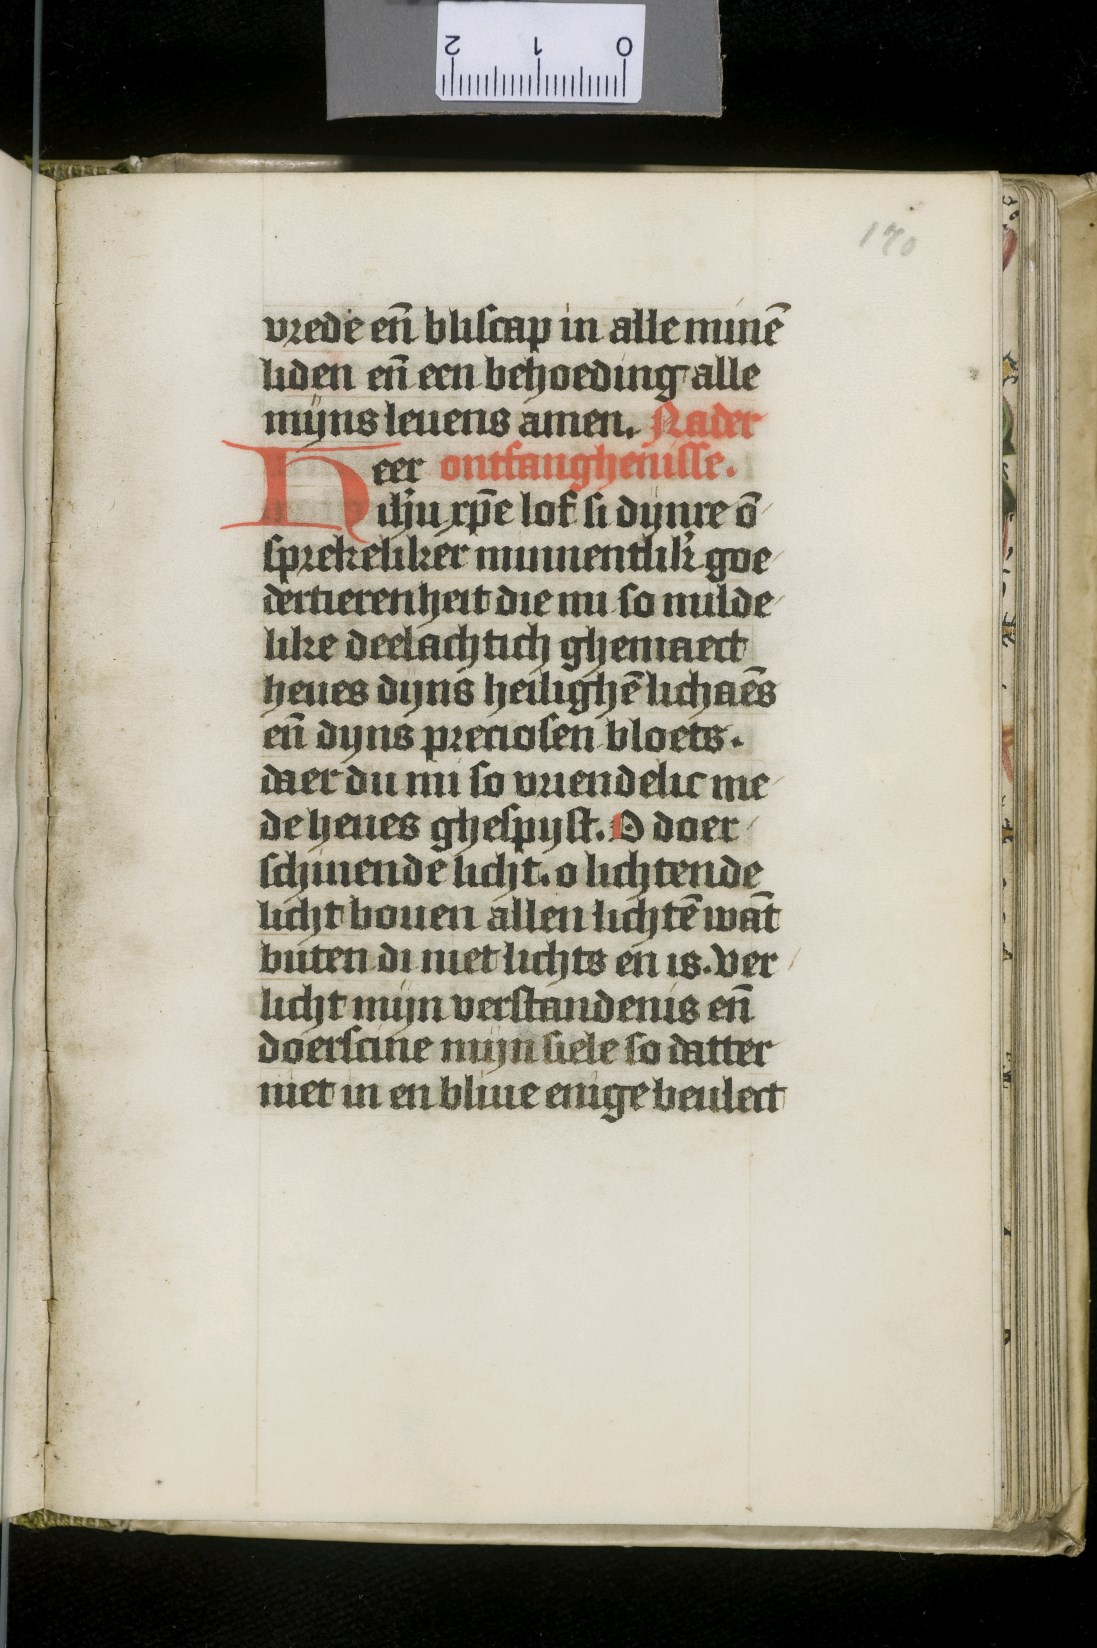 2 1 0
170
vrede en̄ bliscap in alle minē
liden en̄ een behoeding alle
mijns leuens amen. Nader
Heer ontfanghenisse.
ihu xp̄e lof si dijnre ō
sprekeliker minnentlik goe
dertierenheit die mi so milde
like deelachtich ghemaect
heues dijns heilighē lichaēs
en̄ dijns preciosen bloets.
daer du mi so vriendelic me
de heues ghespijst. O doer
schinende licht. o lichtende
licht bouen allen lichtē wāt
buten di niet lichts en is. ver
licht mijn verstandenis en̄
doerscine mijn siele so datter
niet in en bliue enige beulect